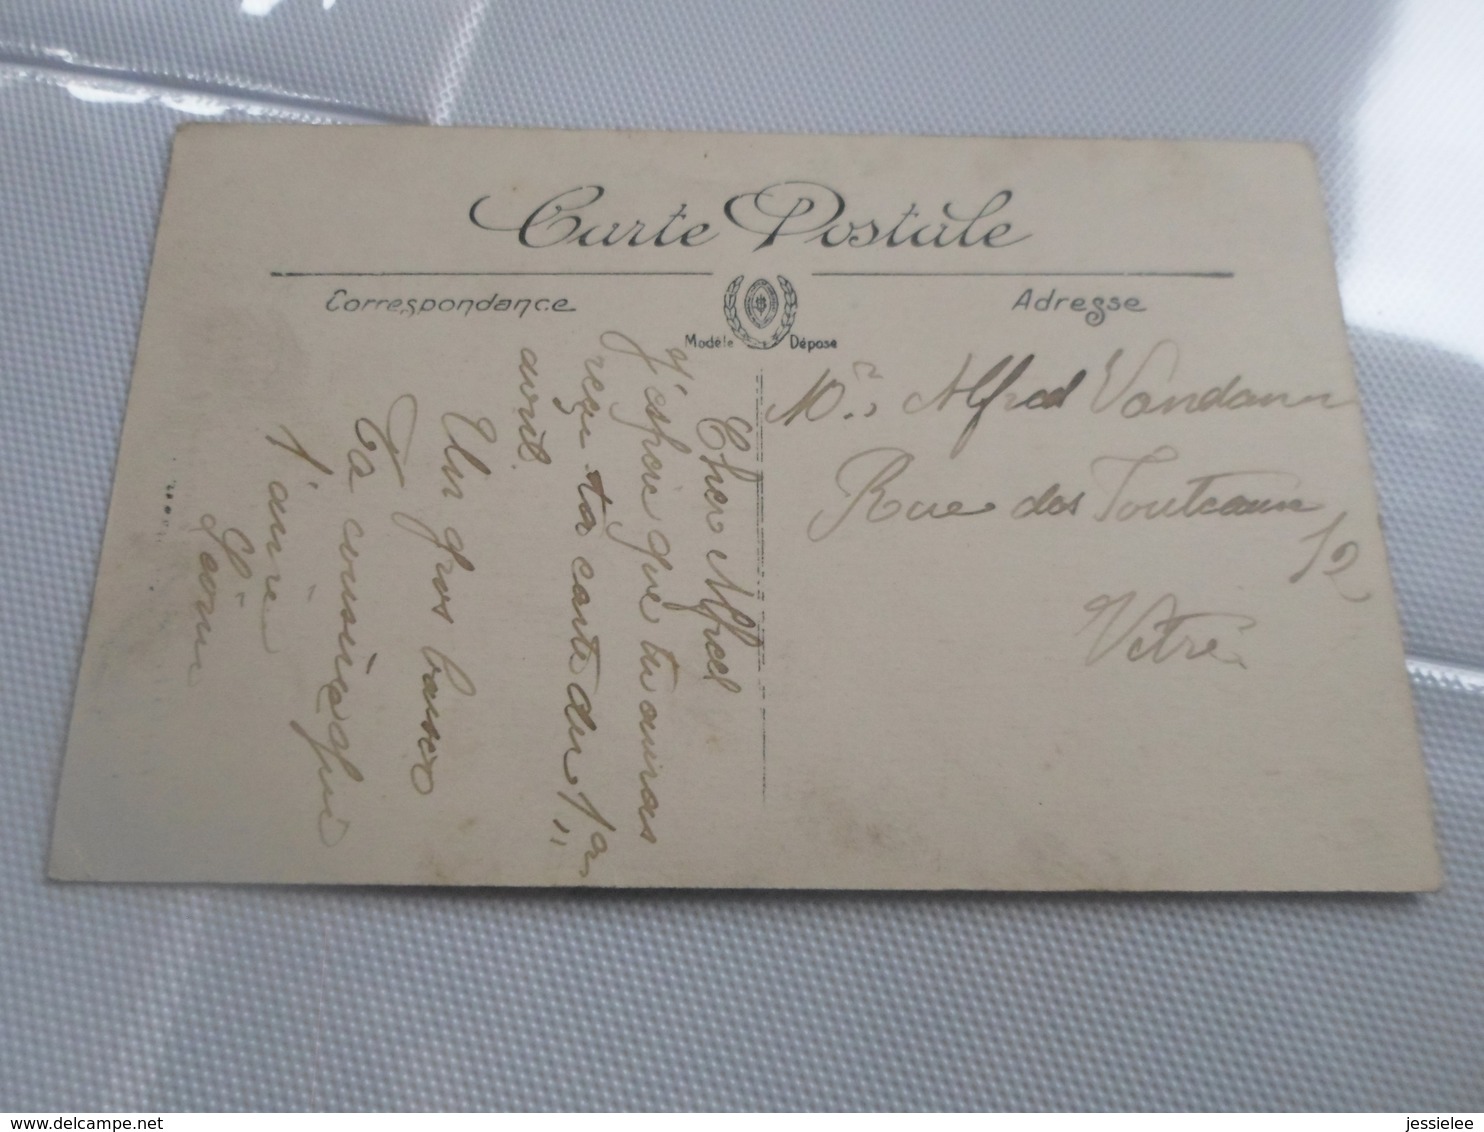 Carte Postale
Correspondance
Adresse
Modèle Déposé
Cher Alfred
J'espère que tu auras
reçu ta carte du 1er
avril.
Un gros baiser
Ta cousine qui
t'aime
Mr Alfred
Rue des
12
Vitré
delcampe.net
jessielee